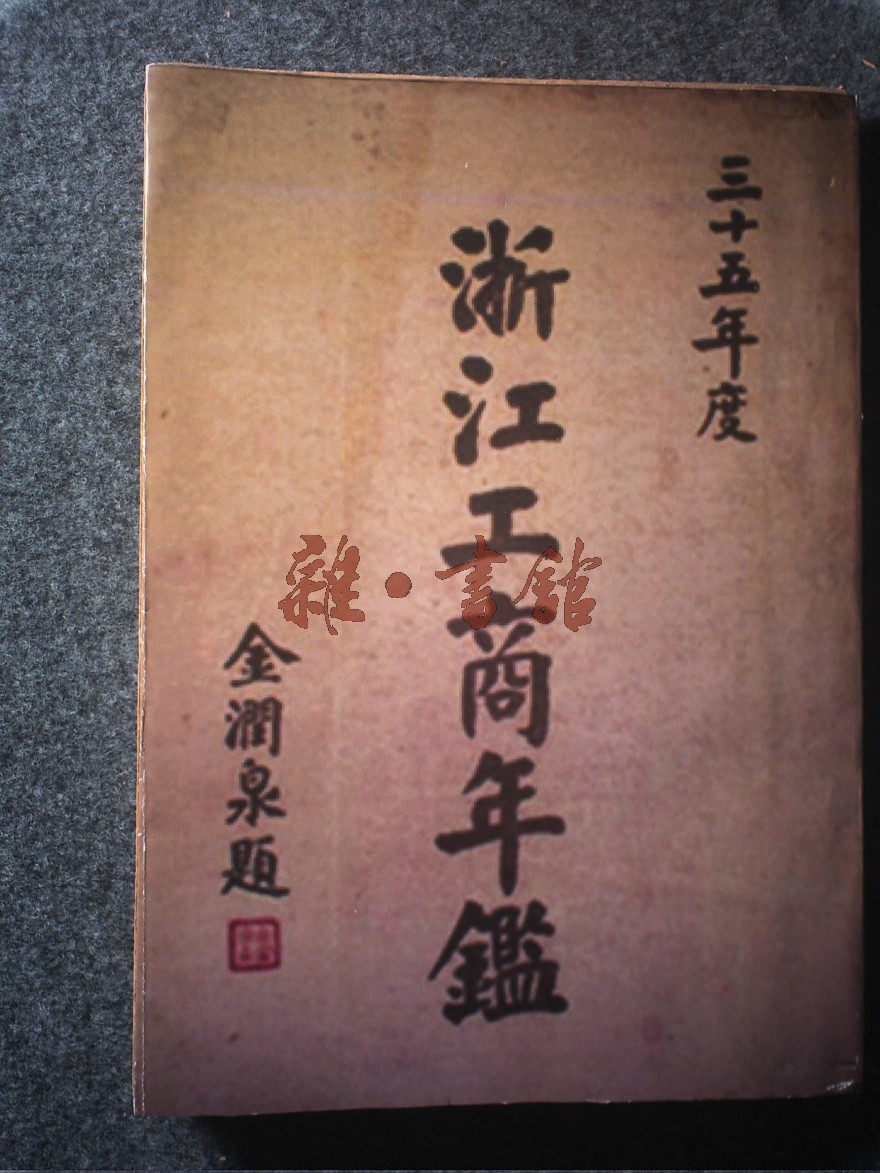 三十五年度
浙江工商年鑑
金潤泉題
雜·書館